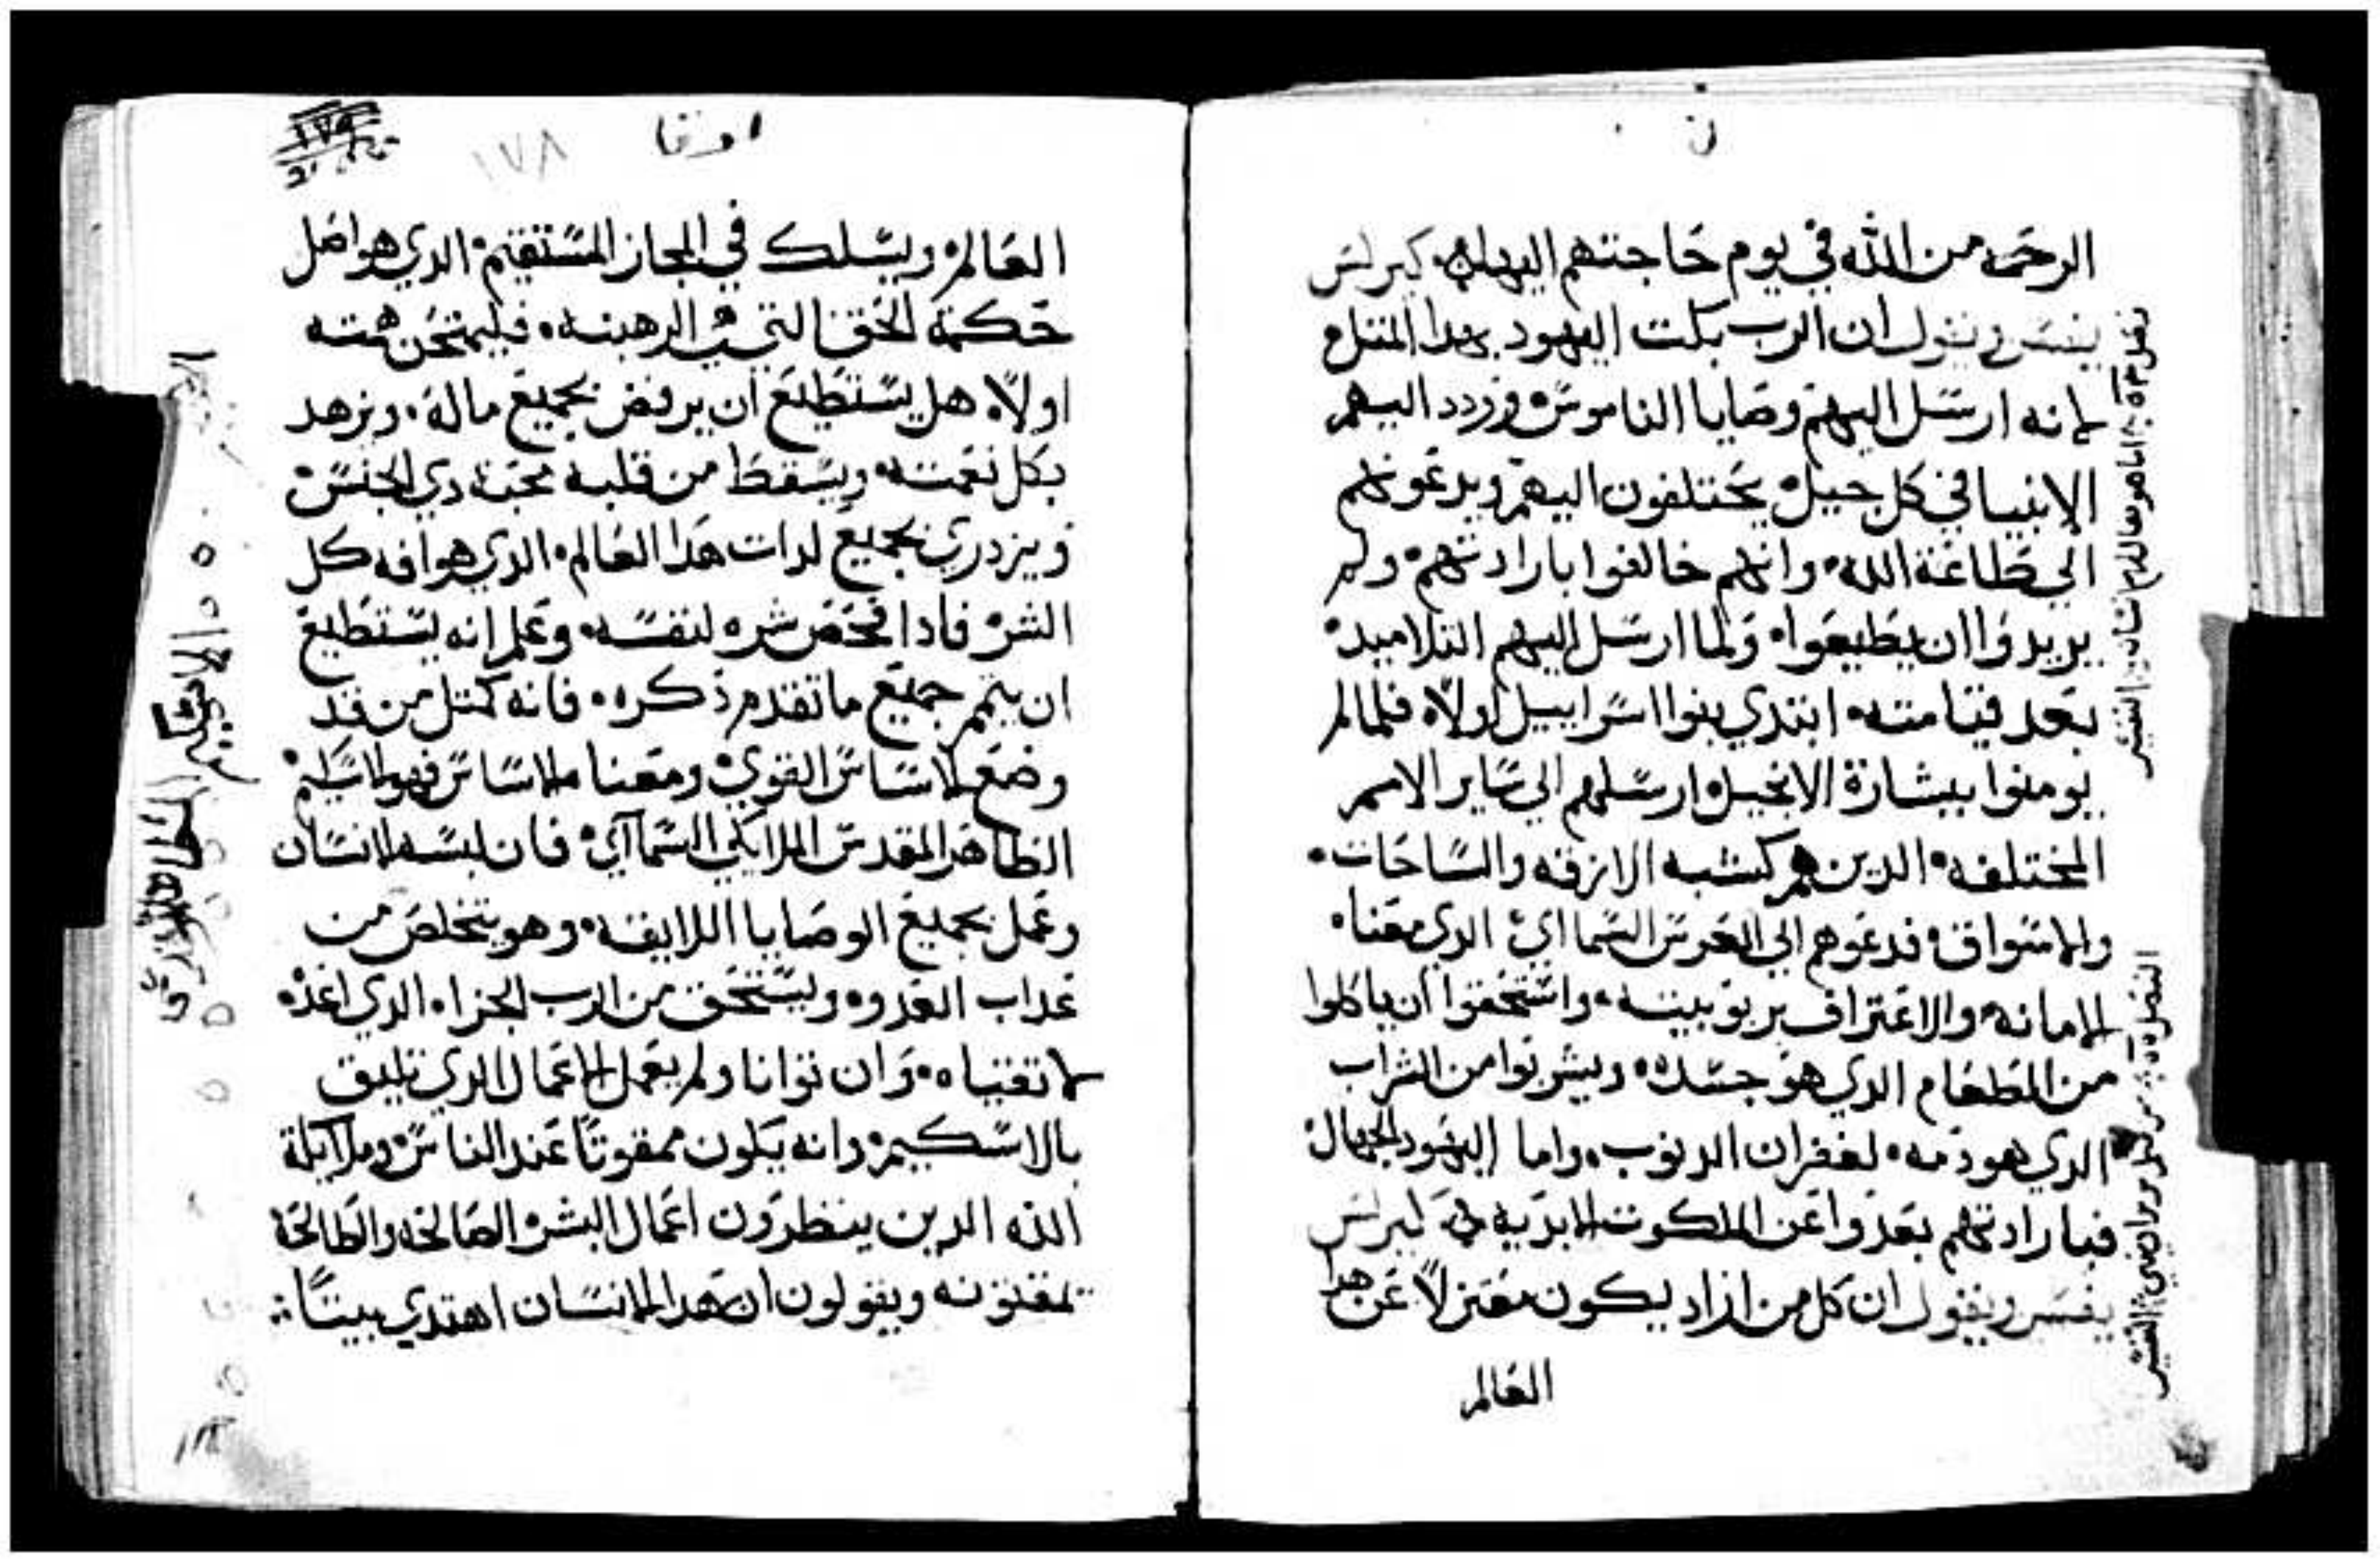 ن
الرحمه من الله في يوم حاجتهم اليها كيرلس
يفسر ويقول ان الرب بكت اليهود بهدا المتل
لانه ارسل اليهم وصايا الناموس وردد اليهم
الانبيا في كل جيل يختلفون اليهم ويدعونهم
الي طاعة الله وانهم خالفوا بارادتهم ولم
يريدوا ان يطيعوا ولما ارسل اليهم التلاميد
بعد قيامته ابتدي بنوا اسراييل اولاً فلما لم
يومنوا ببشارة الانجيل ارسلهم الي ساير الامم
المختلفه الدين هم كشبه الازقه والساحات
والاسواق فدعوهم الي العرس السمااي الدي معناه
الامانه والاعتراف بربوبيته واستحقوا ان ياكلوا
من الطعام الدي هو جسده ويشربوا من الشراب
الدي هو دمه لغفران الدنوب واما اليهود الجهال
فبارادتهم بعدوا عن الملكوت الابديه كيرلس
يفسر ويقول ان كل من اراد يكون معتزلاً عن هدا
العالم
لوقا
١٧٨
العالم ويسلك في المجاز المستقيم الدي هو اصل
حكمة الحق التي هي الرهبنه فليمتحن همته
اولاً هل يستطيع ان يرفض بجميع ماله ويزهد
بكل نعمته ويسقط من قلبه محبة دي الجنس
ويزدري بجميع لدات هدا العالم الدي هو افه كل
الشر فادا فحص شره لنفسه وعلم انه يستطيع
ان يتمم جميع ما تقدم ذكره فانه كمتل من قد
وضع الاساس القوي ومعنا الاساس فهو الاسكيم
الطاهر المقدس الملايكي السمااي فان لبسه الانسان
وعمل بجميع الوصايا اللايقه وهو يتخلص من
عداب العدو ويستحق من الرب الجزاء الدي اعده
لاتقياه وان توانا ولم يعمل الاعمال الدي تليق
بالاسكيم وانه يكون ممقوتاً عند الناس وملايكة
الله الدين ينظرون اعمال البشر الصالحه والطالحة
يمقتونه ويقولون ان هدا الانسان اهتدي ببيتاً